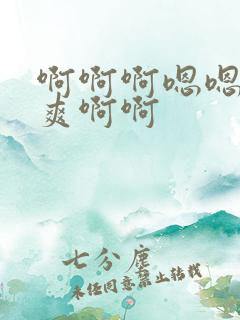 啊啊啊嗯嗯
爽啊啊
七分尘
未经同意禁止转载